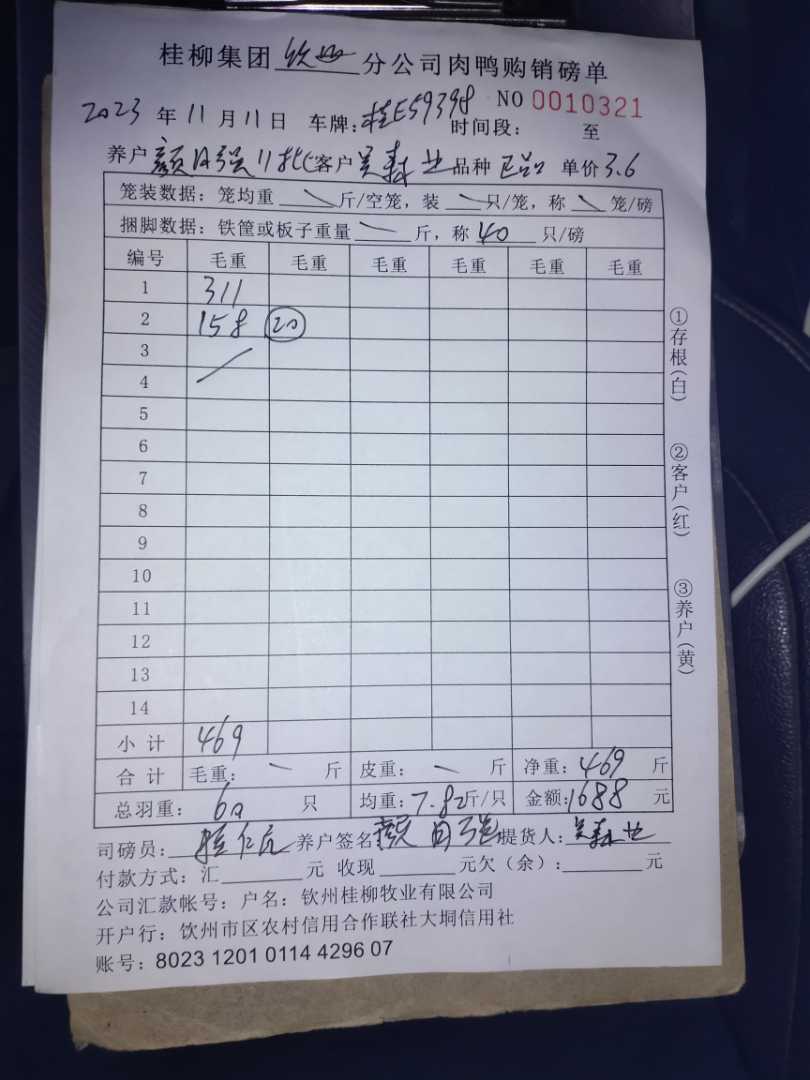 桂柳集团钦州分公司肉鸭购销磅单
NO 0010321
2023年11月11日 车牌:桂E59398 时间段: 至
养户 颜日强11批 客户 吴森 品种 单价3.6
笼装数据:笼均重 斤/空笼,装 只/笼,称 笼/磅
捆脚数据:铁筐或板子重量 斤,称 40 只/磅
编号 毛重 毛重 毛重 毛重 毛重 毛重
1 311
2 158 20
3
4
5
6
7
8
9
10
11
12
13
14
小计 469
合计 毛重: 斤 皮重: 斤 净重:469 斤
总羽重: 60 只 均重:7.82斤/只 金额:1688 元
司磅员: 养户签名 颜日强 提货人: 吴森
付款方式:汇 元 收现 元欠(余): 元
公司汇款帐号:户名:钦州桂柳牧业有限公司
开户行:钦州市区农村信用合作联社大垌信用社
账号:8023 1201 0114 4296 07
①存根(白)
②客户(红)
③养户(黄)